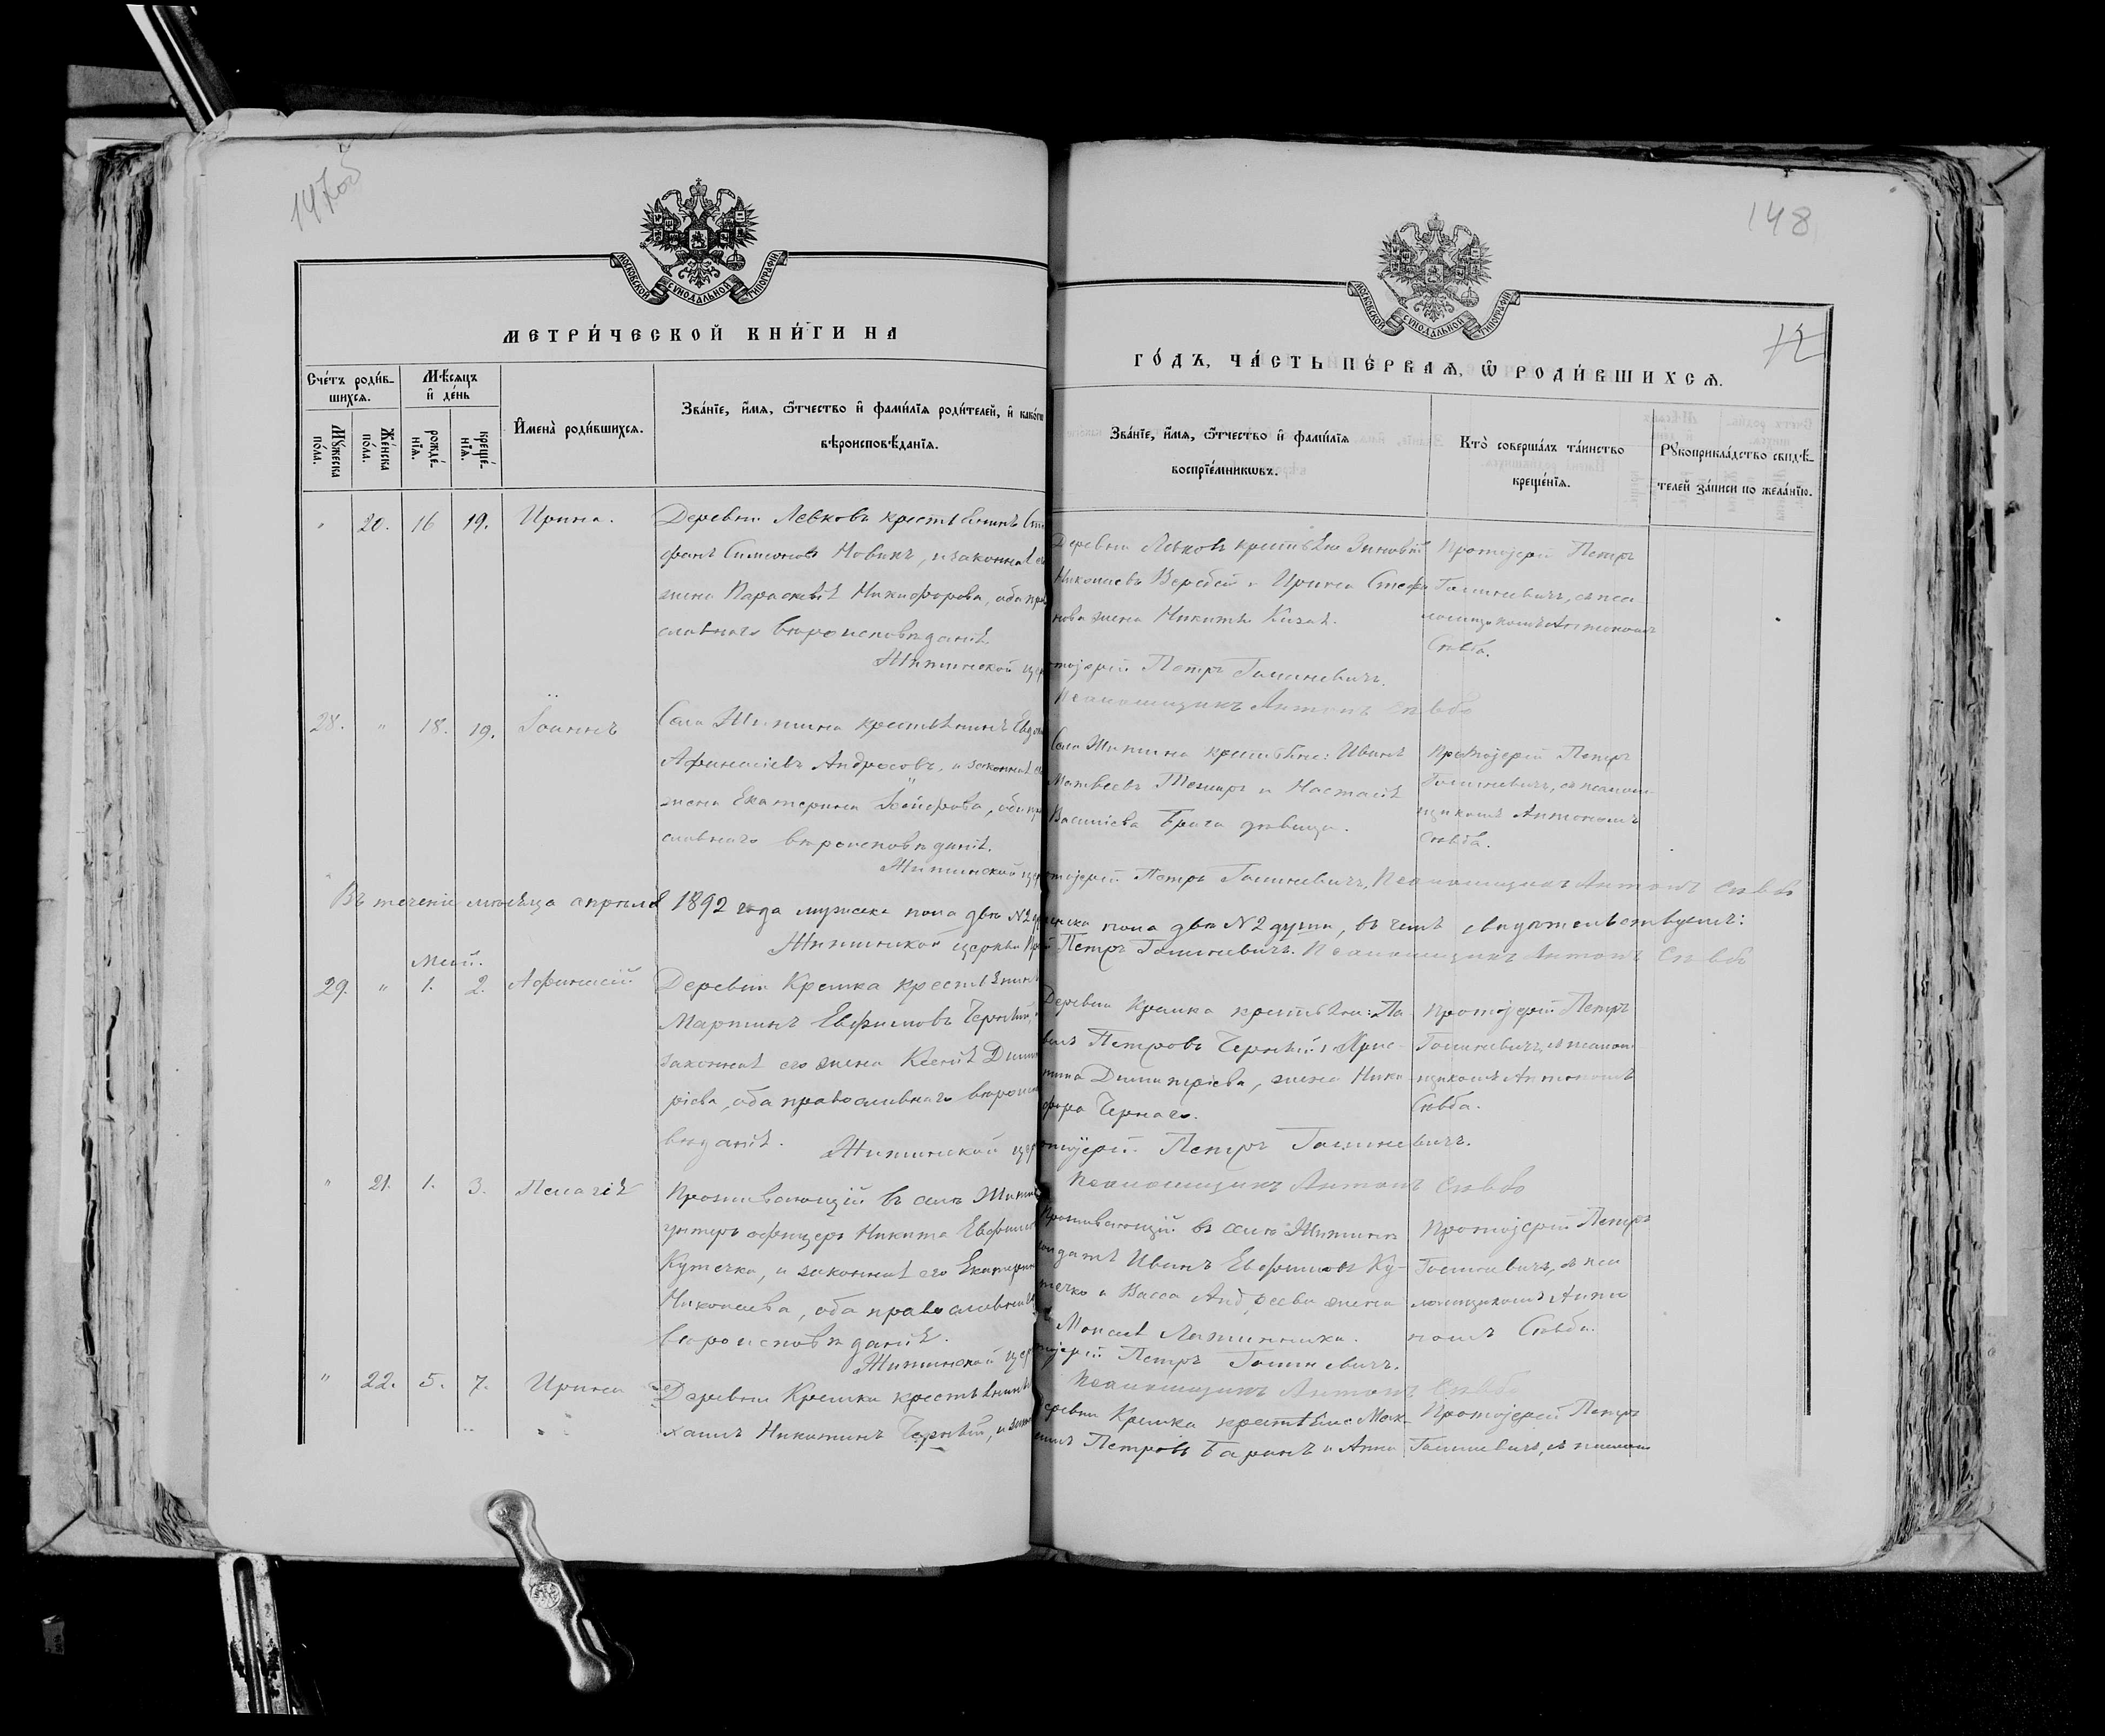 147об
148
12
МОСКОВСКОЙ СѴНОДАЛЬНОЙ ТИПОГРАФІИ
МОСКОВСКОЙ СѴНОДАЛЬНОЙ ТИПОГРАФІИ
МЕТРИ́ЧЕСКОЙ КНИ́ГИ НА
ГО́ДЪ, ЧА́СТЬ ПЕ́РВАѦ, Ѽ РОДИ́ВШИХСѦ.
Сче́тъ роди́в-
шихсѧ.
Мꙋ́жеска по́ла.
Же́нска по́ла.
Мѣ́сѧцъ и҆ де́нь
рожде́-нїѧ.
креще́-нїѧ.
И҆мена̀ роди́вшихсѧ.
Зва́нїе, и҆́мѧ, ѻ҆́тчество и҆ фами́лїѧ роди́телей, и҆ како́гѡ
вѣроисповѣ́данїѧ.
Зва́нїе, и҆́мѧ, ѻ҆́тчество и҆ фами́лїѧ
воспрїе́мникѡвъ.
Кто̀ соверша́лъ та́инство
креще́нїѧ.
Рꙋкоприкла́дство свидѣ́-
телей за́писи по жела́нїю.
" 20. 16 19. Ирина.
Деревни Левковъ крестьянинъ Сте
фанъ Симоновъ Новикъ, и законная е
жена Параскевія Никифорова, оба пра
славнаго вѣроисповѣданія.
Деревни Левковъ крестьяне Зиновій
Николаевъ Веребей и Ирина Стефа
нова жена Никиты Козак.
Протоіерей Петръ
Гашкевичъ, съ пса
ломщикомъ Антономъ
Сѣвба.
Житинской цер
тоіерей Петръ Гашкевичъ.
Псаломщикъ Антонъ Сѣвба
28. " 18. 19. Іоаннъ
Села Житина крестьянинъ Евдок
Афанасіевъ Андросовъ, и законная е
жена Екатерина Іосифова, оба пра
славнаго вѣроисповѣданія.
Села Житина крестьяне: Иванъ
Матвеевъ и Настасія
Василіева Брага дѣвица.
Протоіерей Петръ
Гашкевичъ, съ псалом
щикомъ Антономъ
Сѣвба.
Житинской цер
тоіерей Петръ Гашкевичъ, Псаломщикъ Антонъ Сѣвба
Въ теченіе мѣсяца апрѣля 1892 года мужска пола двѣ №2 ду
женска пола двѣ №2 души, въ чемъ свидѣтельствуемъ:
Житинской церкви Прот
Петръ Гашкевичъ. Псаломщикъ Антонъ Сѣвба
Май.
29. " 1. 2. Афанасій
Деревни Кремка крестьянинъ
Мартинъ Евфимовъ Чорный,
законная его жена Ксенія Димит
ріева, оба православнаго вѣроиспо
вѣданія.
Деревни Кремка крестьяне: Па
велъ Петровъ Чорный и Хрис
тина Димитріева, жена Ники
фора Чернаго.
Протоіерей Петръ
Гашкевичъ, съ псалом
щикомъ Антономъ
Сѣвба.
Житинской цер
тоіерей Петръ Гашкевичъ.
Псаломщикъ Антонъ Сѣвба
" 21. 1. 3. Пелагія
Проживающій въ селѣ Житин
унтеръ офицеръ Никита Евфимов
Кутечко, и законная его Екатерина
Николаева, оба православнаго
вѣроисповѣданія.
Проживающій въ селѣ Житинѣ
солдатъ Иванъ Евфимовъ Ку-
течко и Васса Андреева жена
Моисея
Протоіерей Петръ
Гашкевичъ, съ пса
ломщикомъ Анто
номъ Сѣвба.
Житинской цер
тоіерей Петръ Гашкевичъ.
Псаломщикъ Антонъ Сѣвба
" 22. 5. 7. Ирина
Деревни Кремка крестьянинъ
хаилъ Никитинъ Чорный, и закон
деревни Кремка крестьяне Мак-
симъ Петровъ Баранъ и Анна
Протоіерей Петръ
Гашкевичъ, съ псалом